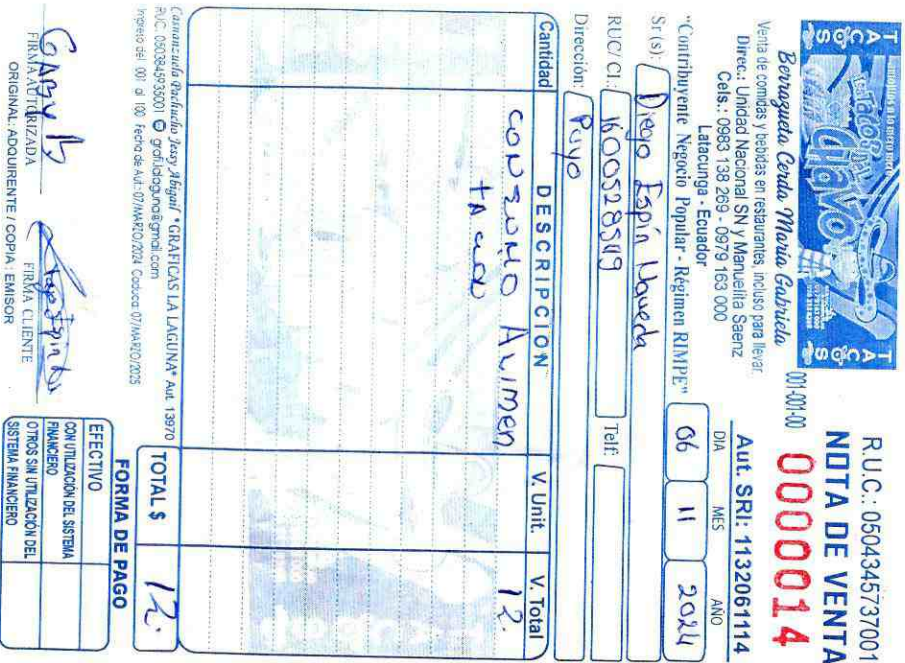 TACOS
Los Tacos DEL
CHAVO
TACOS
Berrazueta Cerda María Gabriela
Venta de comidas y bebidas en restaurantes, incluso para llevar.
Direc.: Unidad Nacional SN y Manuelita Saenz
Cels.: 0983 138 269 - 0979 163 000
Latacunga - Ecuador
"Contribuyente Negocio Popular - Régimen RIMPE"
R.U.C.: 0504345737001
NOTA DE VENTA
001-001-00 0000014
Aut. SRI: 1132061114
DIA MES AÑO
06 11 2024
Sr (s): Diego Espín
RUC/ CI.: 1600528549 Telf:
Dirección: Puyo
Cantidad DESCRIPCIÓN V. Unit. V. Total
CONSUMO ALIMEN 12.
Casnanzuela Pachucho Jessy Abigail "GRAFICAS LA LAGUNA" Aut. 13970
RUC: 0503845935001 graf.lalaguna@gmail.com
Impreso del 001 al 100 Fecha de Aut.: 07/MARZO/2024 Caduca: 07/MARZO/2025
TOTAL $ 12.
FORMA DE PAGO
EFECTIVO
CON UTILIZACIÓN DEL SISTEMA
FINANCIERO
OTROS SIN UTILIZACIÓN DEL
SISTEMA FINANCIERO
FIRMA AUTORIZADA FIRMA CLIENTE
ORIGINAL: ADQUIRENTE / COPIA : EMISOR